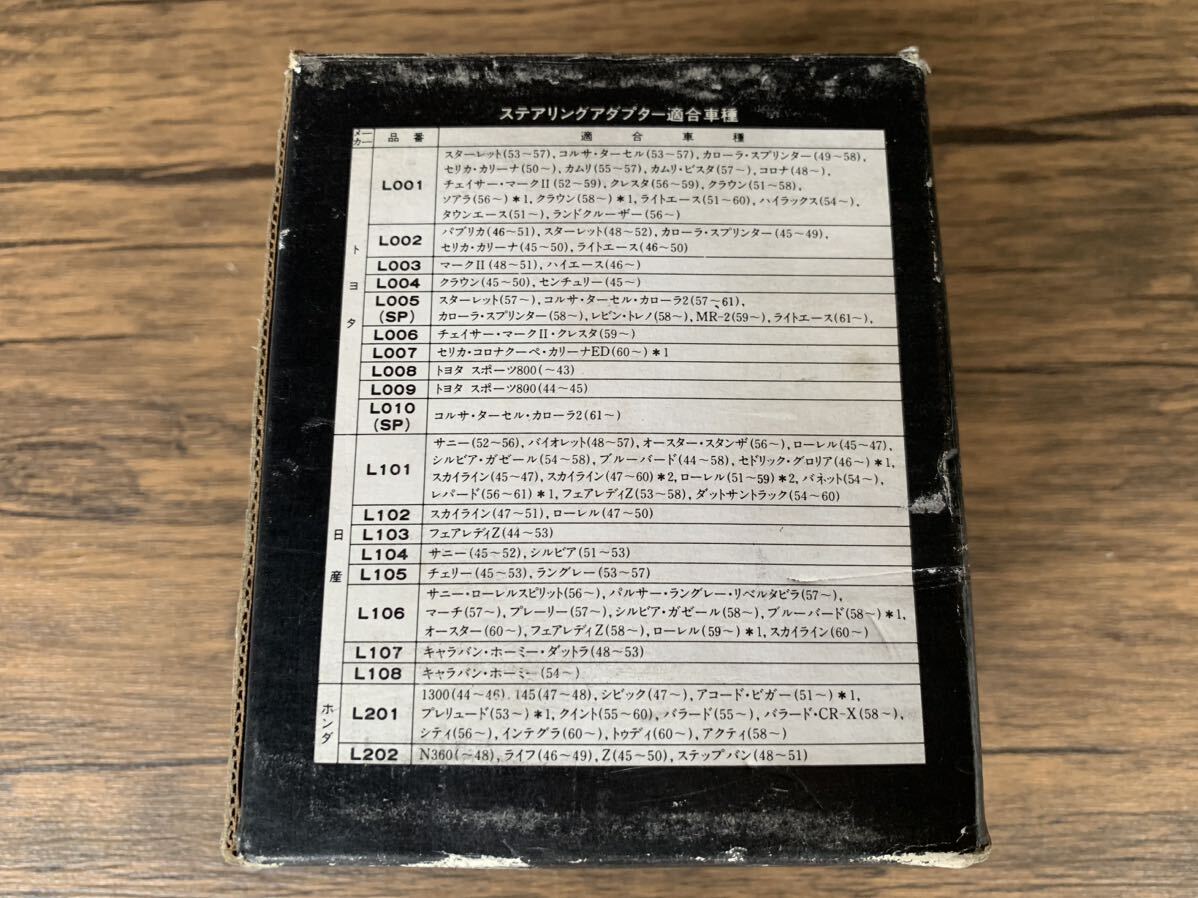 ステアリングアダプター適合車種
メーカー 品番 適合車種
トヨタ
L001 スターレット(53〜57), コルサ・ターセル(53〜57), カローラ・スプリンター(49〜58),
セリカ・カリーナ(50〜), カムリ(55〜57), カムリ・ビスタ(57〜), コロナ(48〜),
チェイサー・マークII(52〜59), クレスタ(56〜59), クラウン(51〜58),
ソアラ(56〜)*1, クラウン(58〜)*1, ライトエース(51〜60), ハイラックス(54〜),
タウンエース(51〜), ランドクルーザー(56〜)
L002 パブリカ(46〜51), スターレット(48〜52), カローラ・スプリンター(45〜49),
セリカ・カリーナ(45〜50), ライトエース(46〜50)
L003 マークII(48〜51), ハイエース(46〜)
L004 クラウン(45〜50), センチュリー(45〜)
L005 (SP) スターレット(57〜), コルサ・ターセル・カローラ2(57〜61),
カローラ・スプリンター(58〜), レビン・トレノ(58〜), MR-2(59〜), ライトエース(61〜),
L006 チェイサー・マークII・クレスタ(59〜)
L007 セリカ・コロナクーペ・カリーナED(60〜)*1
L008 トヨタ スポーツ800(〜43)
L009 トヨタ スポーツ800(44〜45)
L010 (SP) コルサ・ターセル・カローラ2(61〜)
日産
L101 サニー(52〜56), バイオレット(48〜57), オースター・スタンザ(56〜), ローレル(45〜47),
シルビア・ガゼール(54〜58), ブルーバード(44〜58), セドリック・グロリア(46〜)*1,
スカイライン(45〜47), スカイライン(47〜60)*2, ローレル(51〜59)*2, バネット(54〜),
レパード(56〜61)*1, フェアレディZ(53〜58), ダットサントラック(54〜60)
L102 スカイライン(47〜51), ローレル(47〜50)
L103 フェアレディZ(44〜53)
L104 サニー(45〜52), シルビア(51〜53)
L105 チェリー(45〜53), ラングレー(53〜57)
L106 サニー・ローレルスピリット(56〜), パルサー・ラングレー・リベルタビラ(57〜),
マーチ(57〜), プレーリー(57〜), シルビア・ガゼール(58〜), ブルーバード(58〜)*1,
オースター(60〜), フェアレディZ(58〜), ローレル(59〜)*1, スカイライン(60〜)
L107 キャラバン・ホーミー・ダットラ(48〜53)
L108 キャラバン・ホーミー(54〜)
ホンダ
L201 1300(44〜46), 145(47〜48), シビック(47〜), アコード・ビガー(51〜)*1,
プレリュード(53〜)*1, クイント(55〜60), バラード(55〜), バラード・CR-X(58〜),
シティ(56〜), インテグラ(60〜), トゥディ(60〜), アクティ(58〜)
L202 N360(〜48), ライフ(46〜49), Z(45〜50), ステップバン(48〜51)